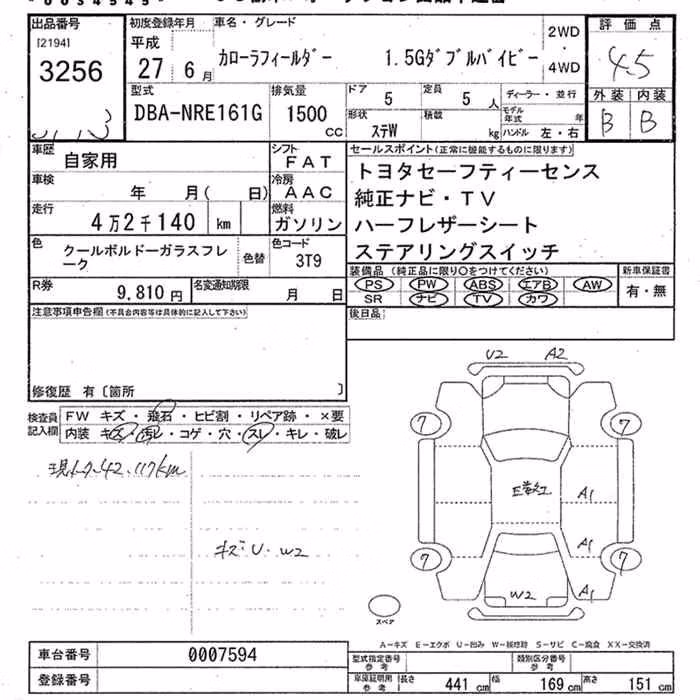 出品番号
[2194]
3256
初度登録年月
平成
27 6 月
車名・グレード
カローラフィールダー 1.5Gダブルバイビー
2WD
4WD
評価点
4.5
外装 内装
B B
型式
DBA-NRE161G
排気量
1500 CC
ドア
5
定員
5 人
ディーラー・並行
形状
ステW
積載
kg
モデル年式 年
ハンドル 左・右
車歴
自家用
シフト
FAT
車検
年 月( 日)
冷房
AAC
走行
4万2千140 km
燃料
ガソリン
色
クールボルドーガラスフレーク
色替
色コード
3T9
R券
9,810 円
名変通知期限
月 日
セールスポイント(正常に機能するものに限ります)
トヨタセーフティーセンス
純正ナビ・TV
ハーフレザーシート
ステアリングスイッチ
装備品 (純正品に限り○をつけてください)
PS PW ABS エアB AW
SR ナビ TV カワ
新車保証書
有・無
後日品
注意事項申告欄(不具合内容等は具体的に記入して下さい)
修復歴 有〔箇所 〕
検査員記入欄
FW キズ・飛石・ヒビ割・リペア跡・×要
内装 キズ・汚レ・コゲ・穴・スレ・キレ・破レ
42,117km
キズ U・W2
U2 A2
7 7
A1
A1
7 7
W2 A1
スペア
A-キズ E-エクボ U-凹み W-板修跡 S-サビ C-腐食 XX-交換済
車台番号
0007594
登録番号
型式指定番号 参考
類別区分番号 参考
車庫証明用 参考
長さ 441 cm 幅 169 cm 高さ 151 cm